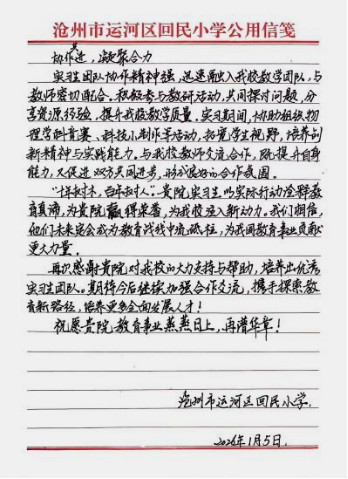 沧州市运河区回民小学公用信笺
协作共进，凝聚合力
实习生团队协作精神强，迅速融入我校教学团队，与
教师密切配合。积极参与教研活动，共同探讨问题，分
享资源经验，提升我校教学质量，实习期间，协助组织物
理学科竞赛、科技小制作等活动，拓宽学生视野，培养创
新精神与实践能力。与我校教师交流合作，既提升自身
能力，又促进双方共同进步，形成良好的合作氛围。
“十年树木，百年树人”。贵院实习生以实际行动诠释教
育真谛，为贵院赢得荣誉，为我校注入新动力。我们相信，
他们未来定会成为教育战线中流砥柱，为我国教育事业贡献
更大力量。
再次感谢贵院对我校的大力支持与帮助，培养出优秀
实习生团队。期待今后继续加强合作交流，携手探索教
育新路径，培养更多全面发展人才！
祝愿贵院教育事业蒸蒸日上，再谱华章！
沧州市运河区回民小学.
2026年1月5日.